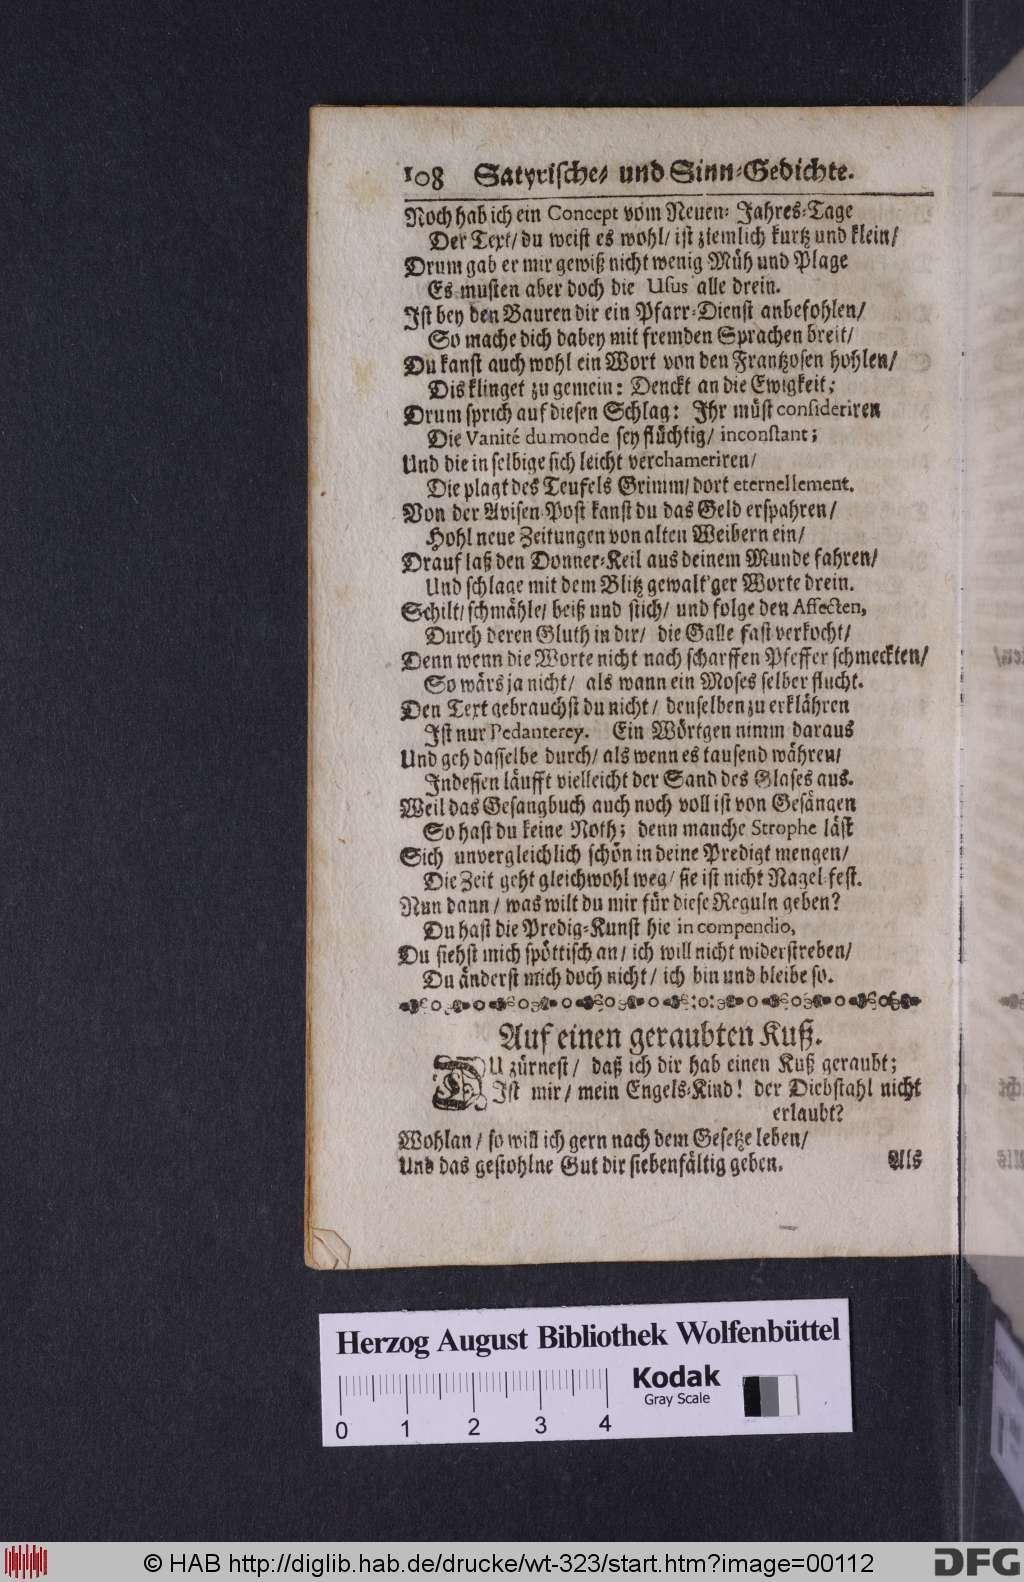 108 Satyrische/ und Sinn-Gedichte.
Noch hab ich ein Concept vom Neuen- Jahres-Tage
Der Text/ du weist es wohl/ ist ziemlich kurtz und klein/
Drum gab er mir gewiß nicht wenig Müh und Plage
Es musten aber doch die Usus alle drein.
Ist bey den Bauren dir ein Pfarr-Dienst anbefohlen/
So mache dich dabey mit fremden Sprachen breit/
Du kanst auch wohl ein Wort von den Frantzosen hohlen/
Dis klinget zu gemein: Denckt an die Ewigkeit;
Drum sprich auf diesen Schlag: Ihr müst consideriren
Die Vanité du monde sey flüchtig/ inconstant;
Und die in selbige sich leicht verchameriren/
Die plagt des Teufels Grimm/ dort eternellement.
Von der Avisen-Post kanst du das Geld erspahren/
Hohl neue Zeitungen von alten Weibern ein/
Drauf laß den Donner-Keil aus deinem Munde fahren/
Und schlage mit dem Blitz gewalt'ger Worte drein.
Schilt/ schmähle/ beiß und stich/ und folge den Affecten,
Durch deren Gluth in dir/ die Galle fast verkocht/
Denn wenn die Worte nicht nach scharffen Pfeffer schmeckten/
So wärs ja nicht/ als wann ein Moses selber flucht.
Den Text gebrauchst du nicht/ denselben zu erklähren
Ist nur Pedanterey. Ein Wörtgen nimm daraus
Und geh dasselbe durch/ als wenn es tausend währen/
Indessen läufft vielleicht der Sand des Glases aus.
Weil das Gesangbuch auch noch voll ist von Gesängen
So hast du keine Noth; denn manche Strophe läst
Sich unvergleichlich schön in deine Predigt mengen/
Die Zeit geht gleichwohl weg/ sie ist nicht Nagel-fest.
Nun dann/ was wilt du mir für diese Reguln geben?
Du hast die Predig-Kunst hie in compendio,
Du siehst mich spöttisch an/ ich will nicht widerstreben/
Du änderst mich doch nicht/ ich bin und bleibe so.
Auf einen geraubten Kuß.
DU zürnest/ daß ich dir hab einen Kuß geraubt;
Ist mir/ mein Engels-Kind! der Diebstahl nicht
erlaubt?
Wohlan/ so will ich gern nach dem Gesetze leben/
Und das gestohlne Gut dir siebenfältig geben. Als
Herzog August Bibliothek Wolfenbüttel
Kodak
Gray Scale
0 1 2 3 4
© HAB http://diglib.hab.de/drucke/wt-323/start.htm?image=00112
DFG